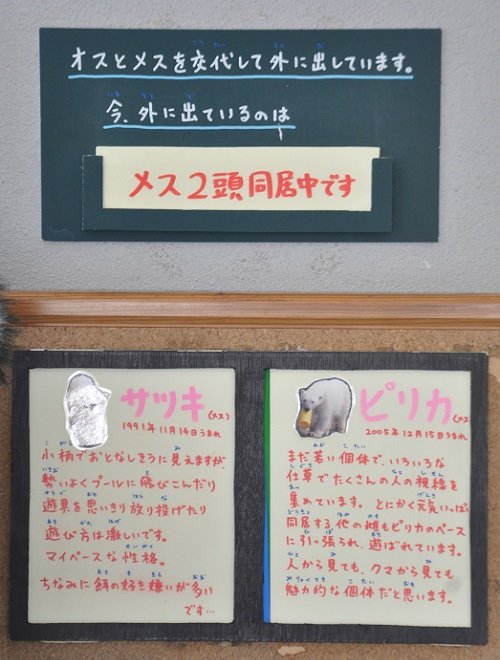 オスとメスを交代して外に出しています。
今、外に出ているのは
メス2頭同居中です
サツキ(メス)
1991年11月14日うまれ
小柄でおとなしそうに見えますが、
勢いよくプールに飛びこんだり
遊具を思いきり放り投げたり
遊び方は激しいです。
マイペースな性格。
ちなみに餌の好き嫌いが多い
です…
ピリカ(メス)
2005年12月15日うまれ
まだ若い個体で、いろいろな
仕草でたくさんの人の視線を
集めています。とにかく元気いっぱい。
同居する他の雌もピリカのペース
に引っ張られ、遊ばれています。
人から見ても、クマから見ても
魅力的な個体だと思います。